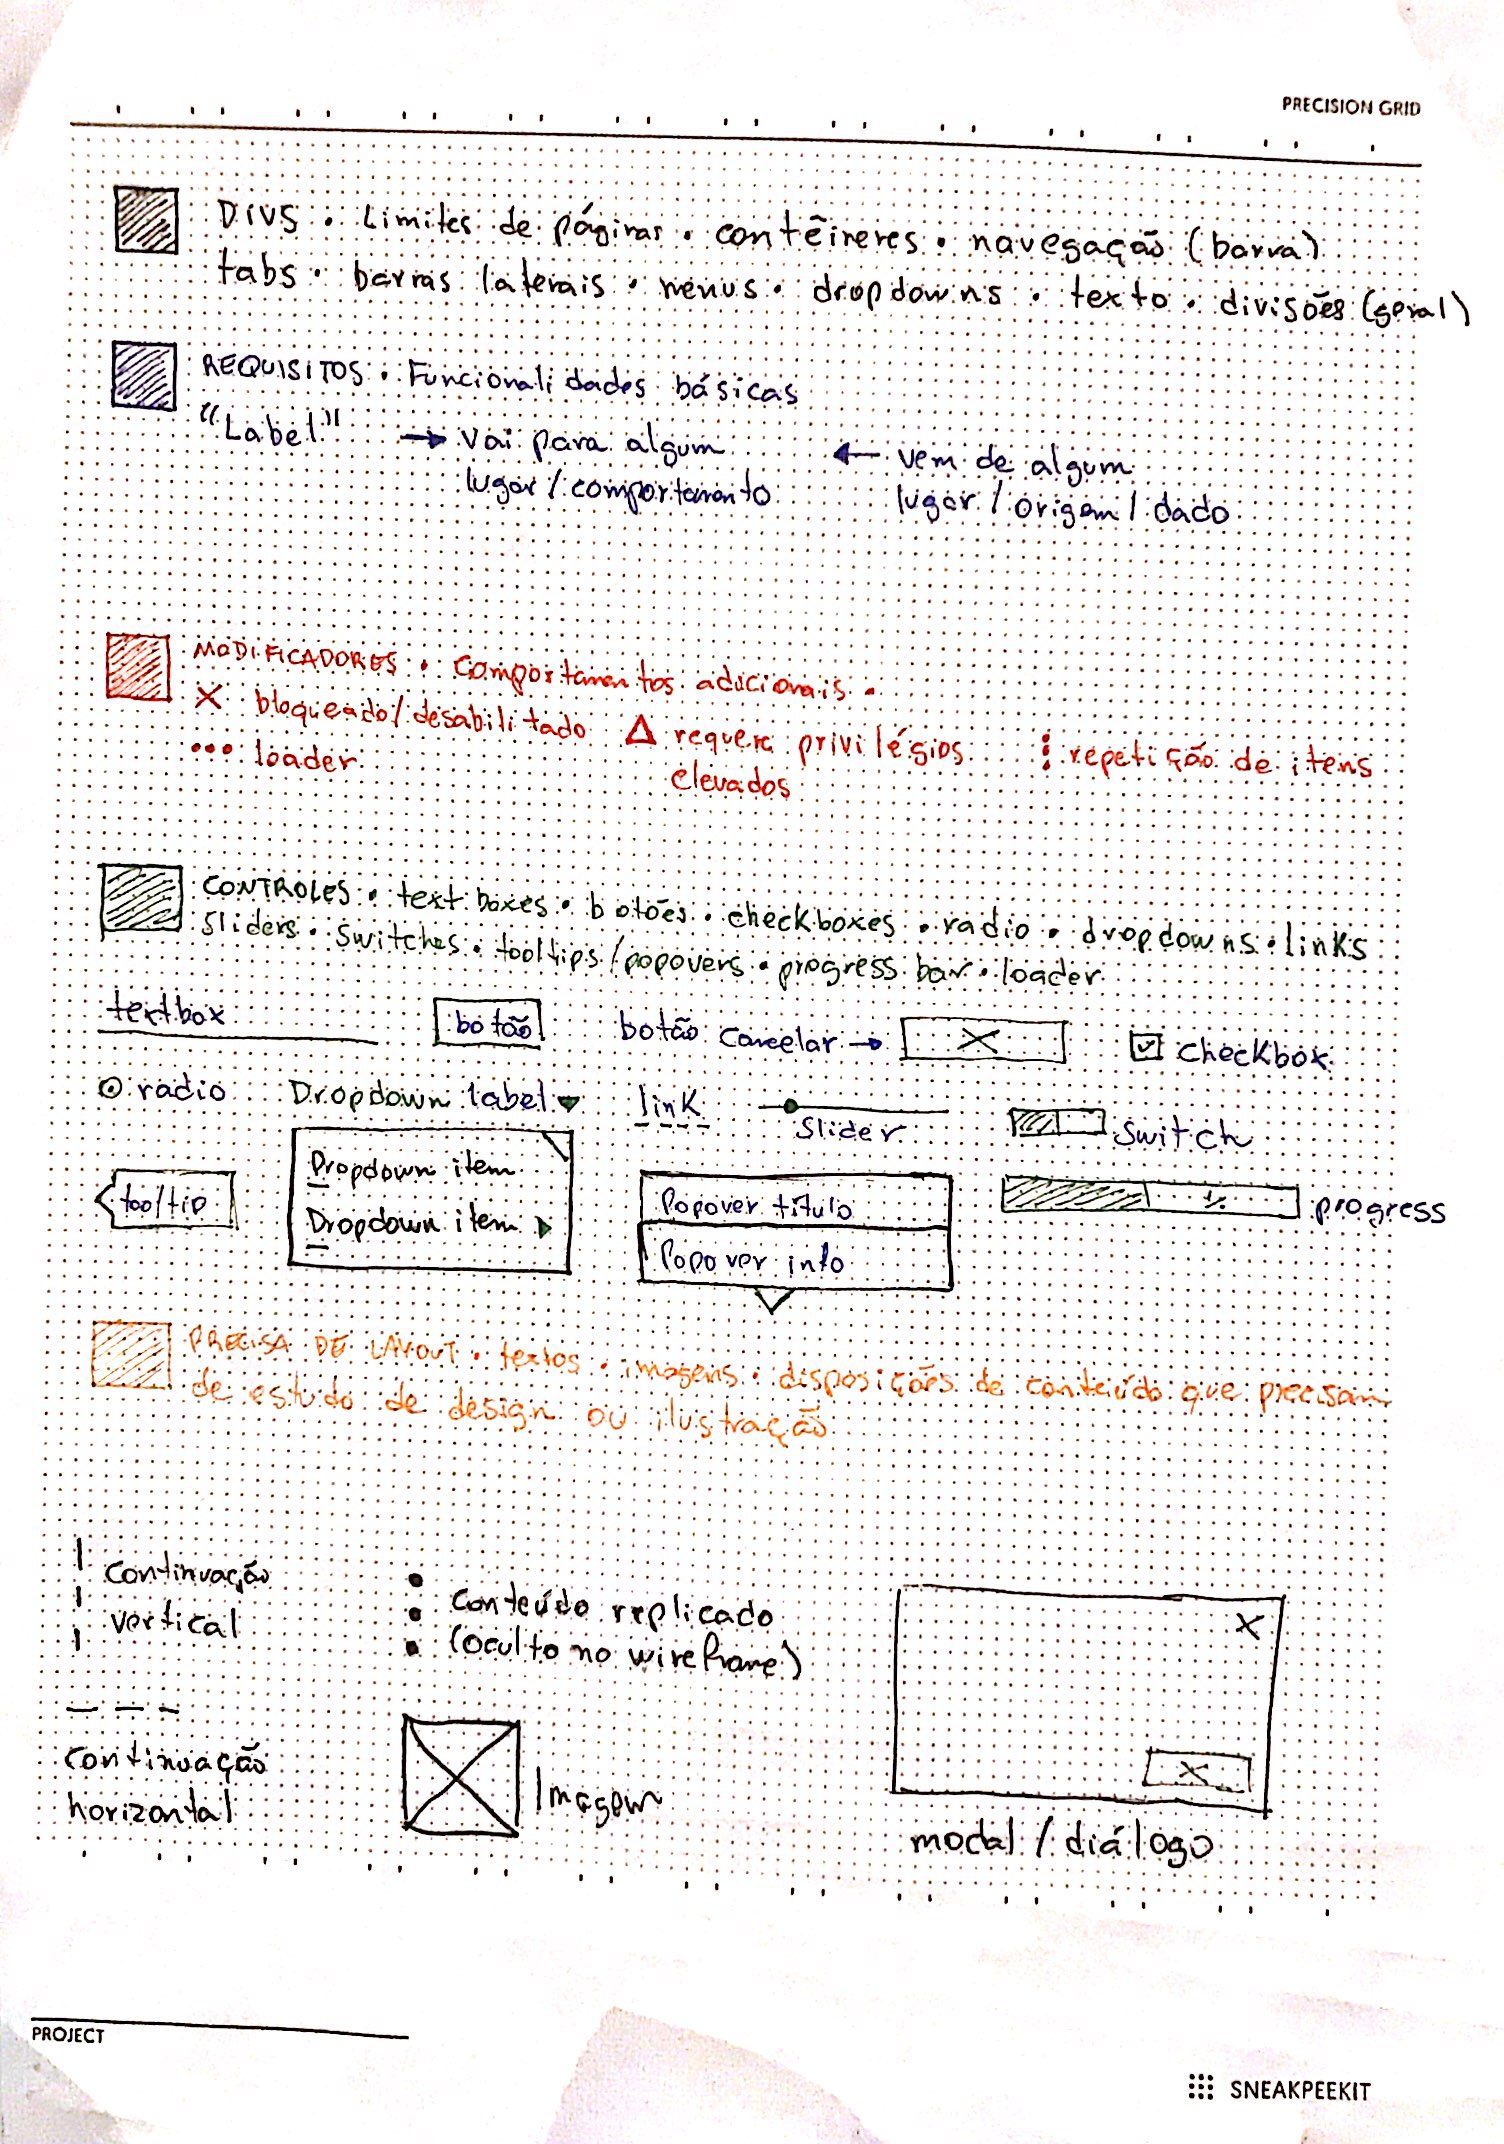 PRECISION GRID
DIVS • Limites de páginas • contêineres • navegação (barra)
tabs • barras laterais • menus • dropdowns • texto • divisões (geral)
REQUISITOS • Funcionalidades básicas
"Label" → vai para algum ← vem de algum
lugar / comportamento lugar / origem / dado
MODIFICADORES • Comportamentos adicionais •
X bloqueado/desabilitado △ requer privilégios ⋮ repetição de itens
••• loader elevados
CONTROLES • textboxes • botões • checkboxes • radio • dropdowns • links
sliders • switches • tooltips/popovers • progress bar • loader
textbox botão botão cancelar → X checkbox
radio Dropdown label link slider switch
tooltip Dropdown item Popover título % progress
Dropdown item Popover info
PRECISA DE LAYOUT • textos • imagens • disposições de conteúdo que precisam
de estudo de design ou ilustração
continuação conteúdo replicado X
vertical (oculto no wireframe)
continuação Imagem X
horizontal modal / diálogo
PROJECT
SNEAKPEEKIT